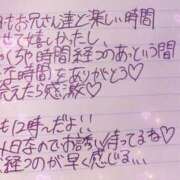 もお兄さん達と楽しい時間
せて嬉しかたし、
くら時間経つのあっという間
な時間をありがとう♡
えたら感激♡
も12時へだよ!!
十日なのでお誘い待ってまね♡
経つのが早く感じる...